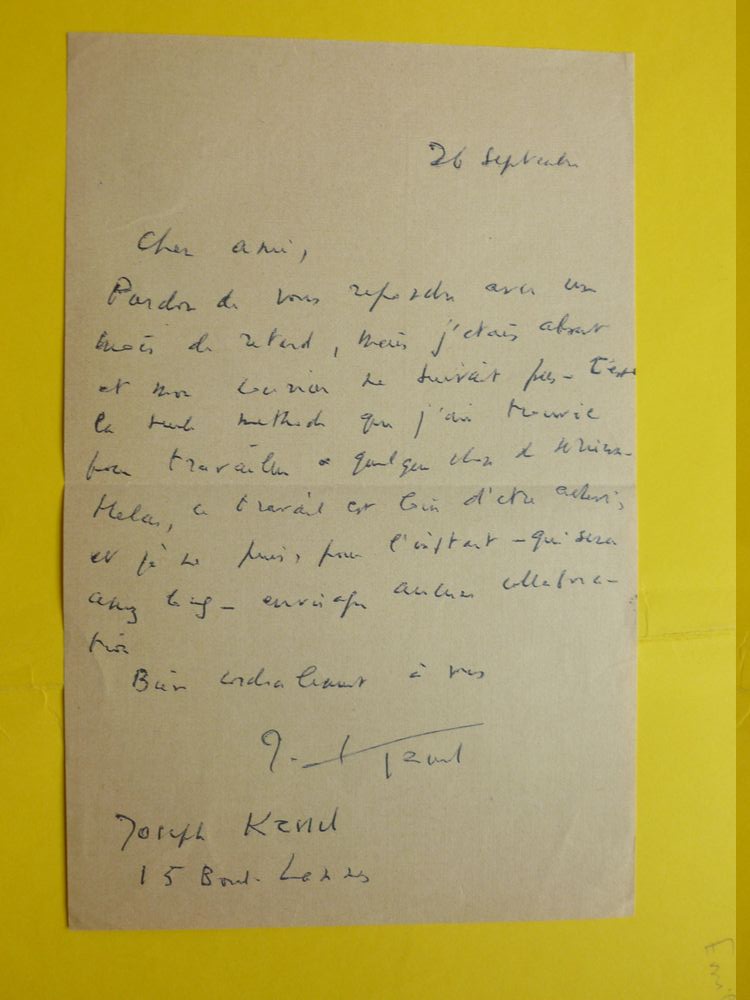 26 Septembre
Cher ami,
Pardon de vous repondre avec un
mois de retard, mais j'etais absent
et mon courrier ne suivait pas - C'est
la seule methode que j'ai trouvée
pour travailler a quelque chose de serieux.
Helas, ce travail est loin d'etre achevé,
et je ne puis, pour l'instant - qui sera
assez long - envisager aucune collabora-
tion
Bien cordialement à vous
J. Kessel
Joseph Kessel
15 Boul. Lannes